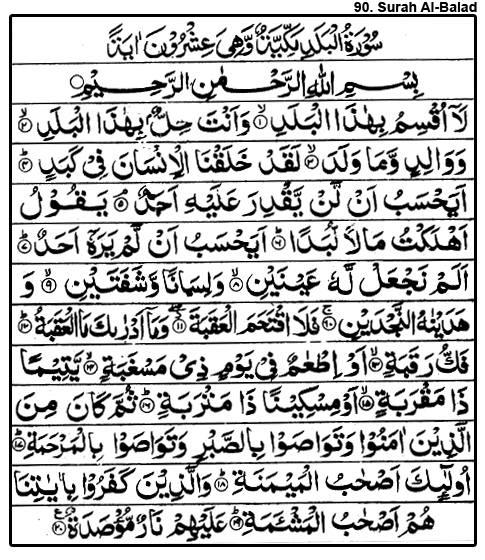 90. Surah Al-Balad
سُوْرَةُ الْبَلَدِ مَكِّيَّةٌ وَّهِيَ عِشْرُوْنَ اٰيَةً
بِسْمِ اللّٰهِ الرَّحْمٰنِ الرَّحِيْمِ
لَآ اُقْسِمُ بِهٰذَا الْبَلَدِ ۙ۱ وَاَنْتَ حِلٌّۢ بِهٰذَا الْبَلَدِ ۙ۲
وَوَالِدٍ وَّمَا وَلَدَ ۙ۳ لَقَدْ خَلَقْنَا الْاِنْسَانَ فِيْ كَبَدٍ ؕ۴
اَيَحْسَبُ اَنْ لَّنْ يَّقْدِرَ عَلَيْهِ اَحَدٌ ۘ۵ يَقُوْلُ
اَهْلَكْتُ مَالًا لُّبَدًا ؕ۶ اَيَحْسَبُ اَنْ لَّمْ يَرَهٗۤ اَحَدٌ ؕ۷
اَلَمْ نَجْعَلْ لَّهٗ عَيْنَيْنِ ۙ۸ وَلِسَانًا وَّشَفَتَيْنِ ۙ۹ وَ
هَدَيْنٰهُ النَّجْدَيْنِ ۚ۱۰ فَلَا اقْتَحَمَ الْعَقَبَةَ ۖ۱۱ وَمَآ اَدْرٰىكَ مَا الْعَقَبَةُ ؕ۱۲
فَكُّ رَقَبَةٍ ۙ۱۳ اَوْ اِطْعٰمٌ فِيْ يَوْمٍ ذِيْ مَسْغَبَةٍ ۙ۱۴ يَّتِيْمًا
ذَا مَقْرَبَةٍ ۙ۱۵ اَوْ مِسْكِيْنًا ذَا مَتْرَبَةٍ ؕ۱۶ ثُمَّ كَانَ مِنَ
الَّذِيْنَ اٰمَنُوْا وَتَوَاصَوْا بِالصَّبْرِ وَتَوَاصَوْا بِالْمَرْحَمَةِ ؕ۱۷
اُولٰٓئِكَ اَصْحٰبُ الْمَيْمَنَةِ ؕ۱۸ وَالَّذِيْنَ كَفَرُوْا بِاٰيٰتِنَا
هُمْ اَصْحٰبُ الْمَشْـَٔمَةِ ؕ۱۹ عَلَيْهِمْ نَارٌ مُّؤْصَدَةٌ ۲۰